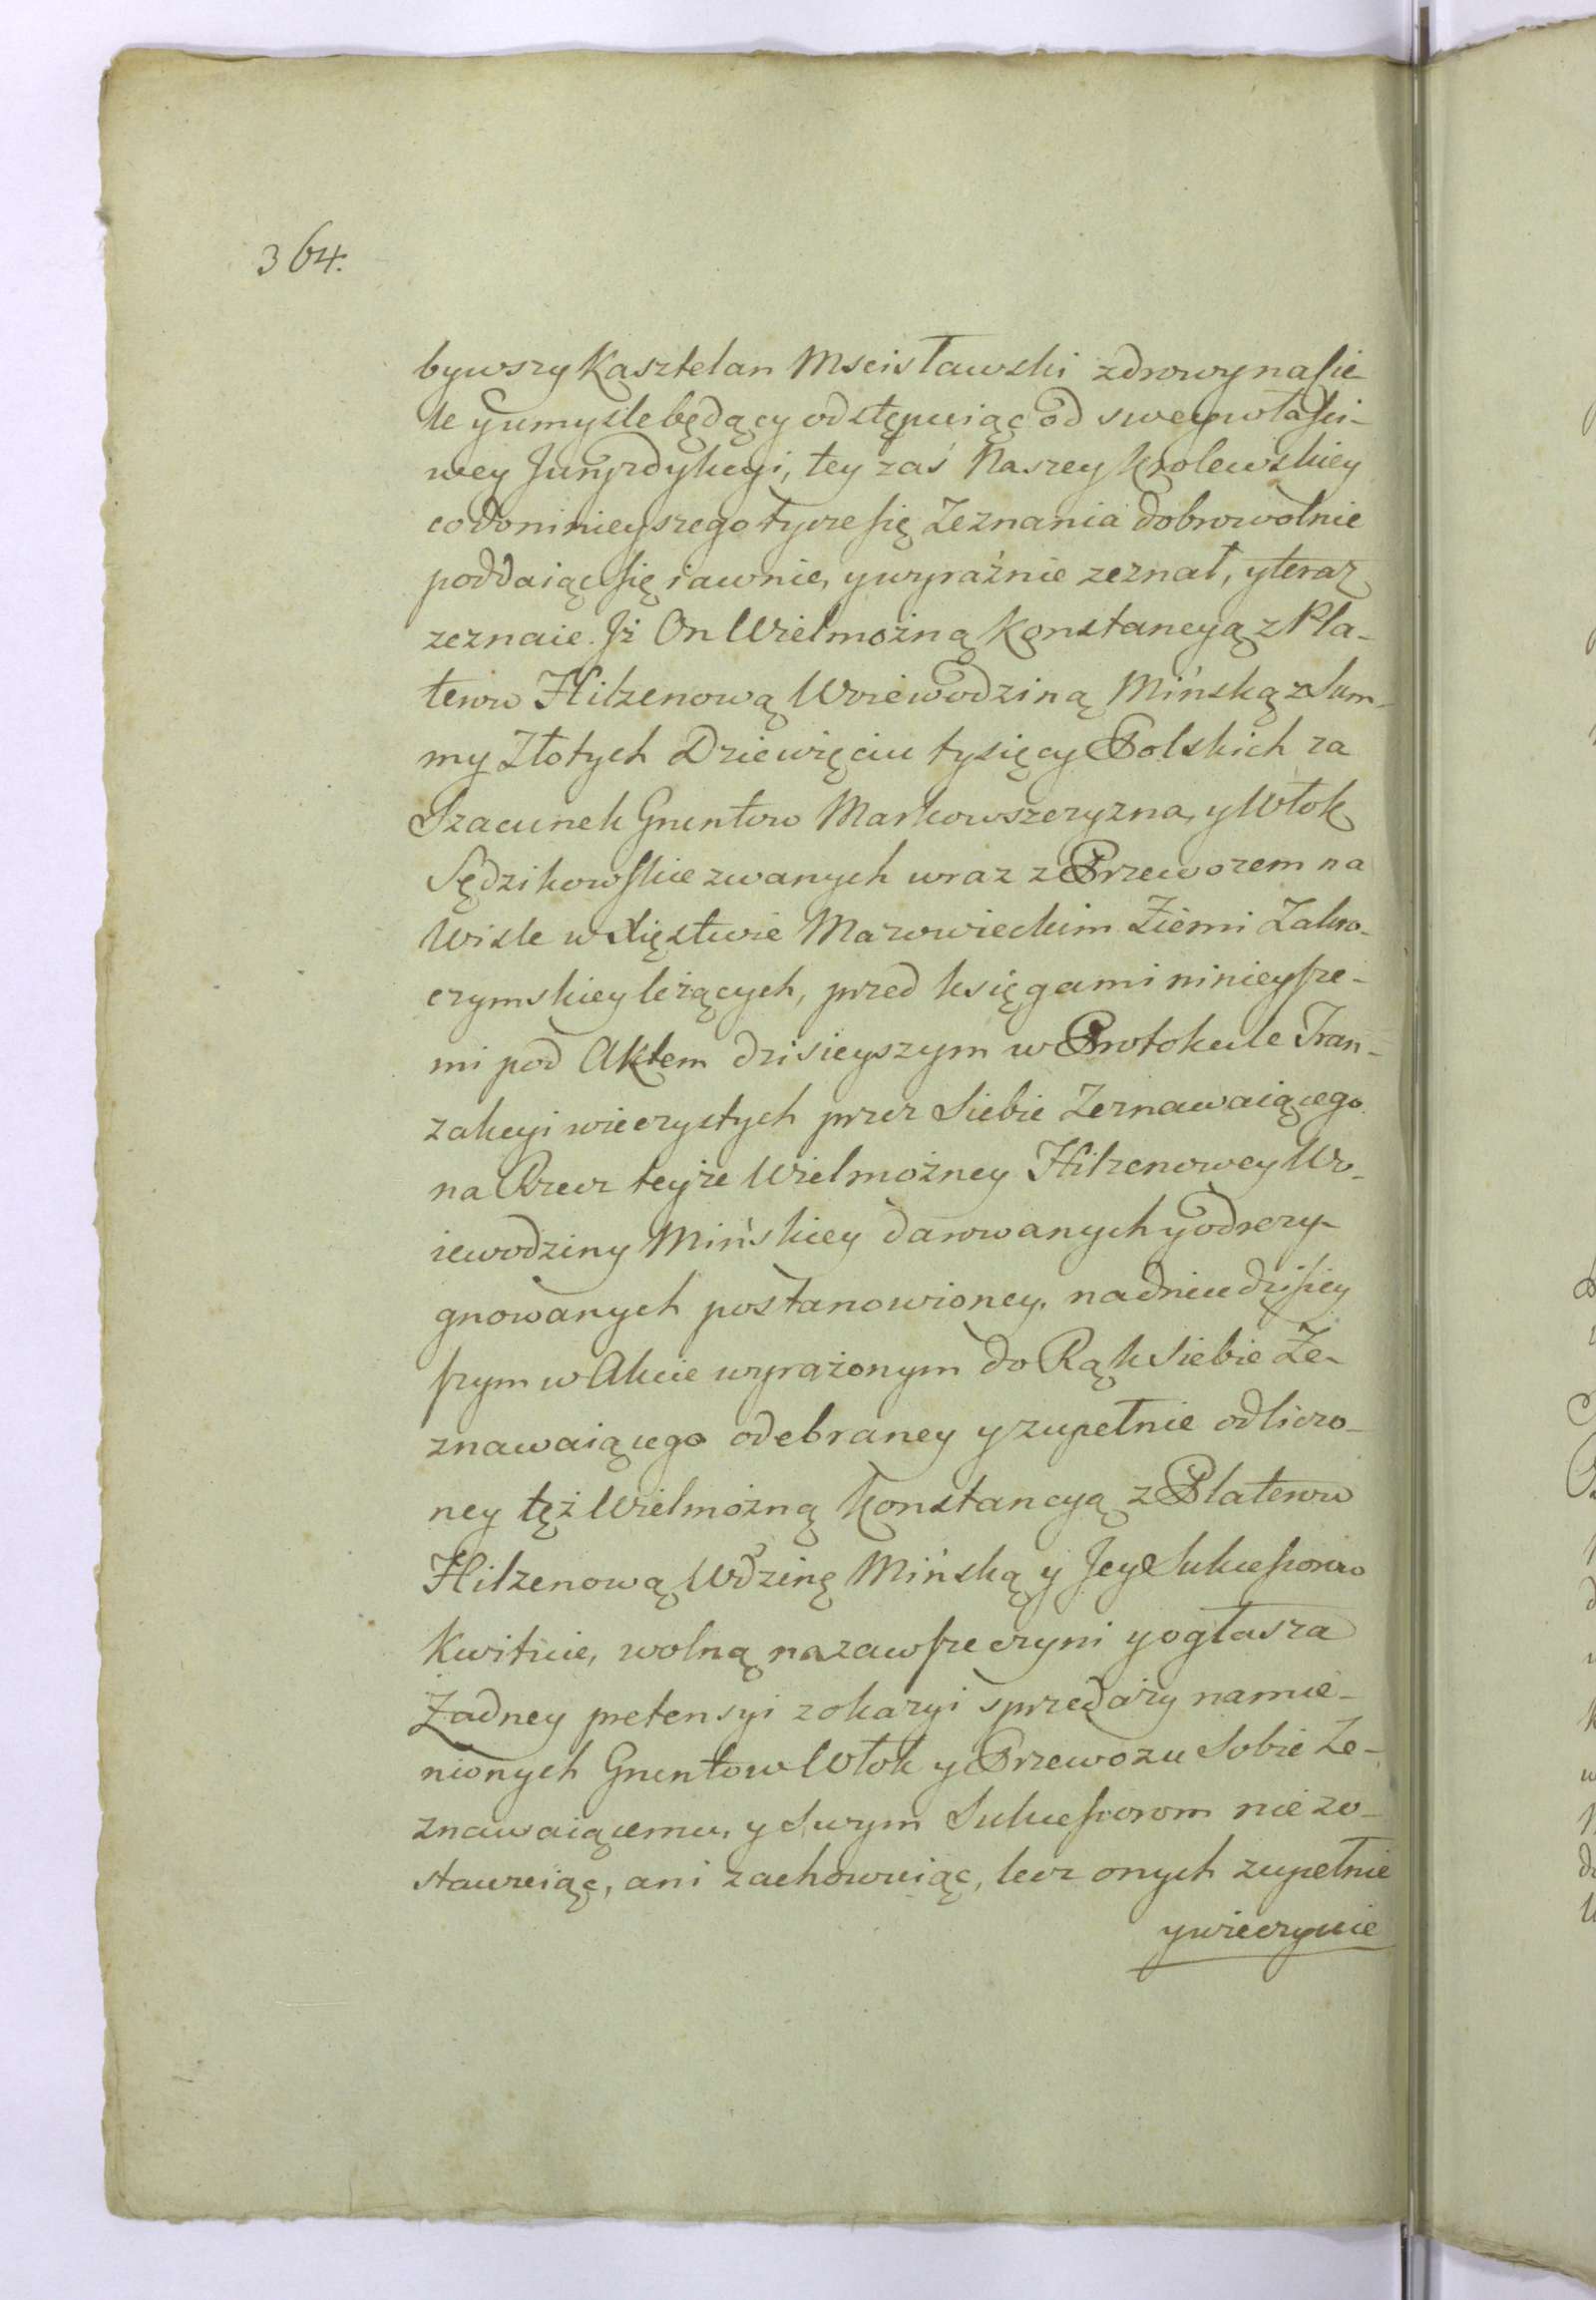 364.
bywszy Kasztelan Mscisławski zdrowy na sie-
le y umyśle będący odstępuiąc od swey właści-
wey Juryzdykcyi, tey zaś Naszey Krolewskiey
co do ninieyszego tycze się Zeznania dobrowolnie
poddaiąc się iawnie, y wyraźnie zeznał, y teraz
zeznaie. Jż On Wielmożną Konstancyą z Pla-
terow Hilzenową Woiewodziną Mińską z Sum-
my Złotych Dziewięciu tysięcy Polskich za
Szacunek Gruntow Markowszczyzna, y Włok
Sędzikowskie zwanych wraz z Przewozem na
Wisle w Xięstwie Mazowieckim Ziemi Zakro-
czymskiey leżących, przed księgami ninieysze-
mi pod Aktem dzisieyszym w Protokule Tran-
zakcyi wieczystych przez Siebie Zeznawaiącego
na Rzecz teyże Wielmożney Hilzenowey Wo-
iewodziny Mińskiey darowanych y odrezy-
gnowanych postanowioney, na dniu dzisiey
szym w Akcie wyrażonym do Rąk Siebie Ze-
znawaiącego odebraney y zupełnie odliczo-
ney tęż Wielmożną Konstancyą z Platerow
Hilzenową Wdzinę Mińską y Jey Sukcessorow
Kwituie, wolną na zawsze czyni y ogłasza
Żadney pretensyi z okazyi sprzedaży namie-
nionych Gruntow Włok y Przewozu Sobie Ze-
znawaiącemu, y Swym Sukcessorom nie zo-
stawuiąc, ani zachowuiąc, lecz onych zupełnie
y wieczyście